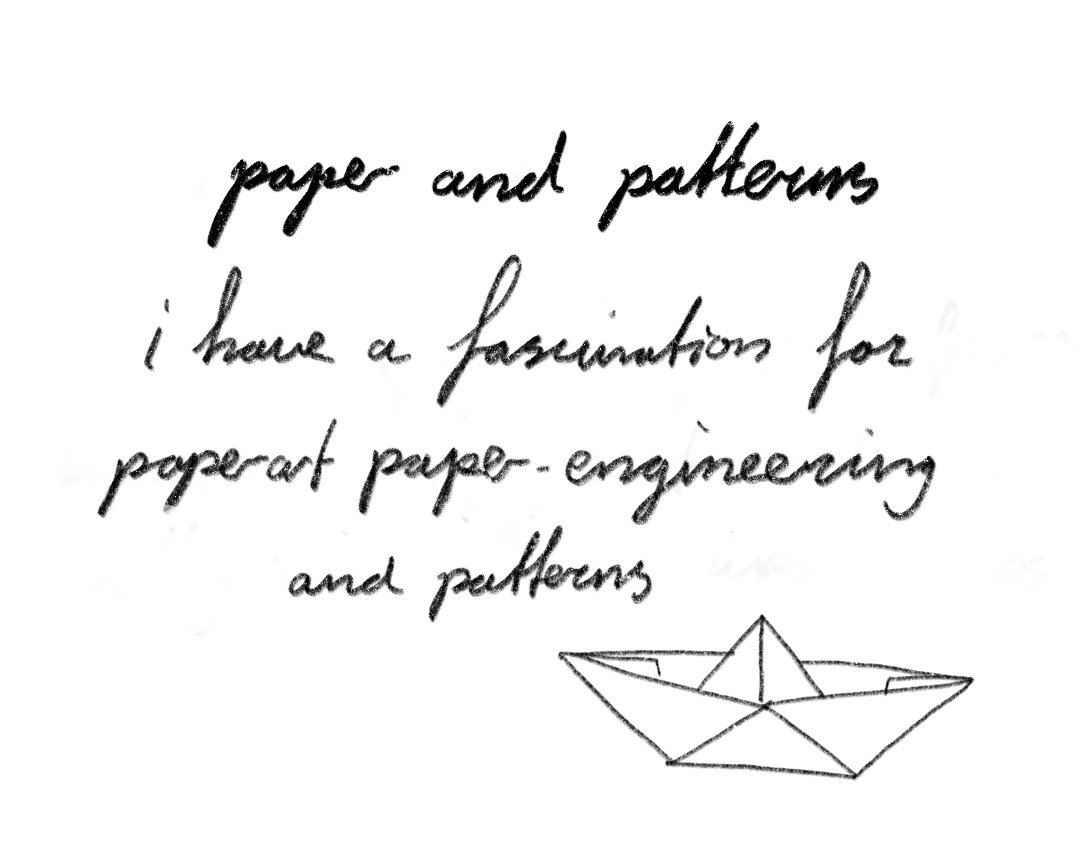 paper and patterns
i have a fascination for
paperart paper-engineering
and patterns